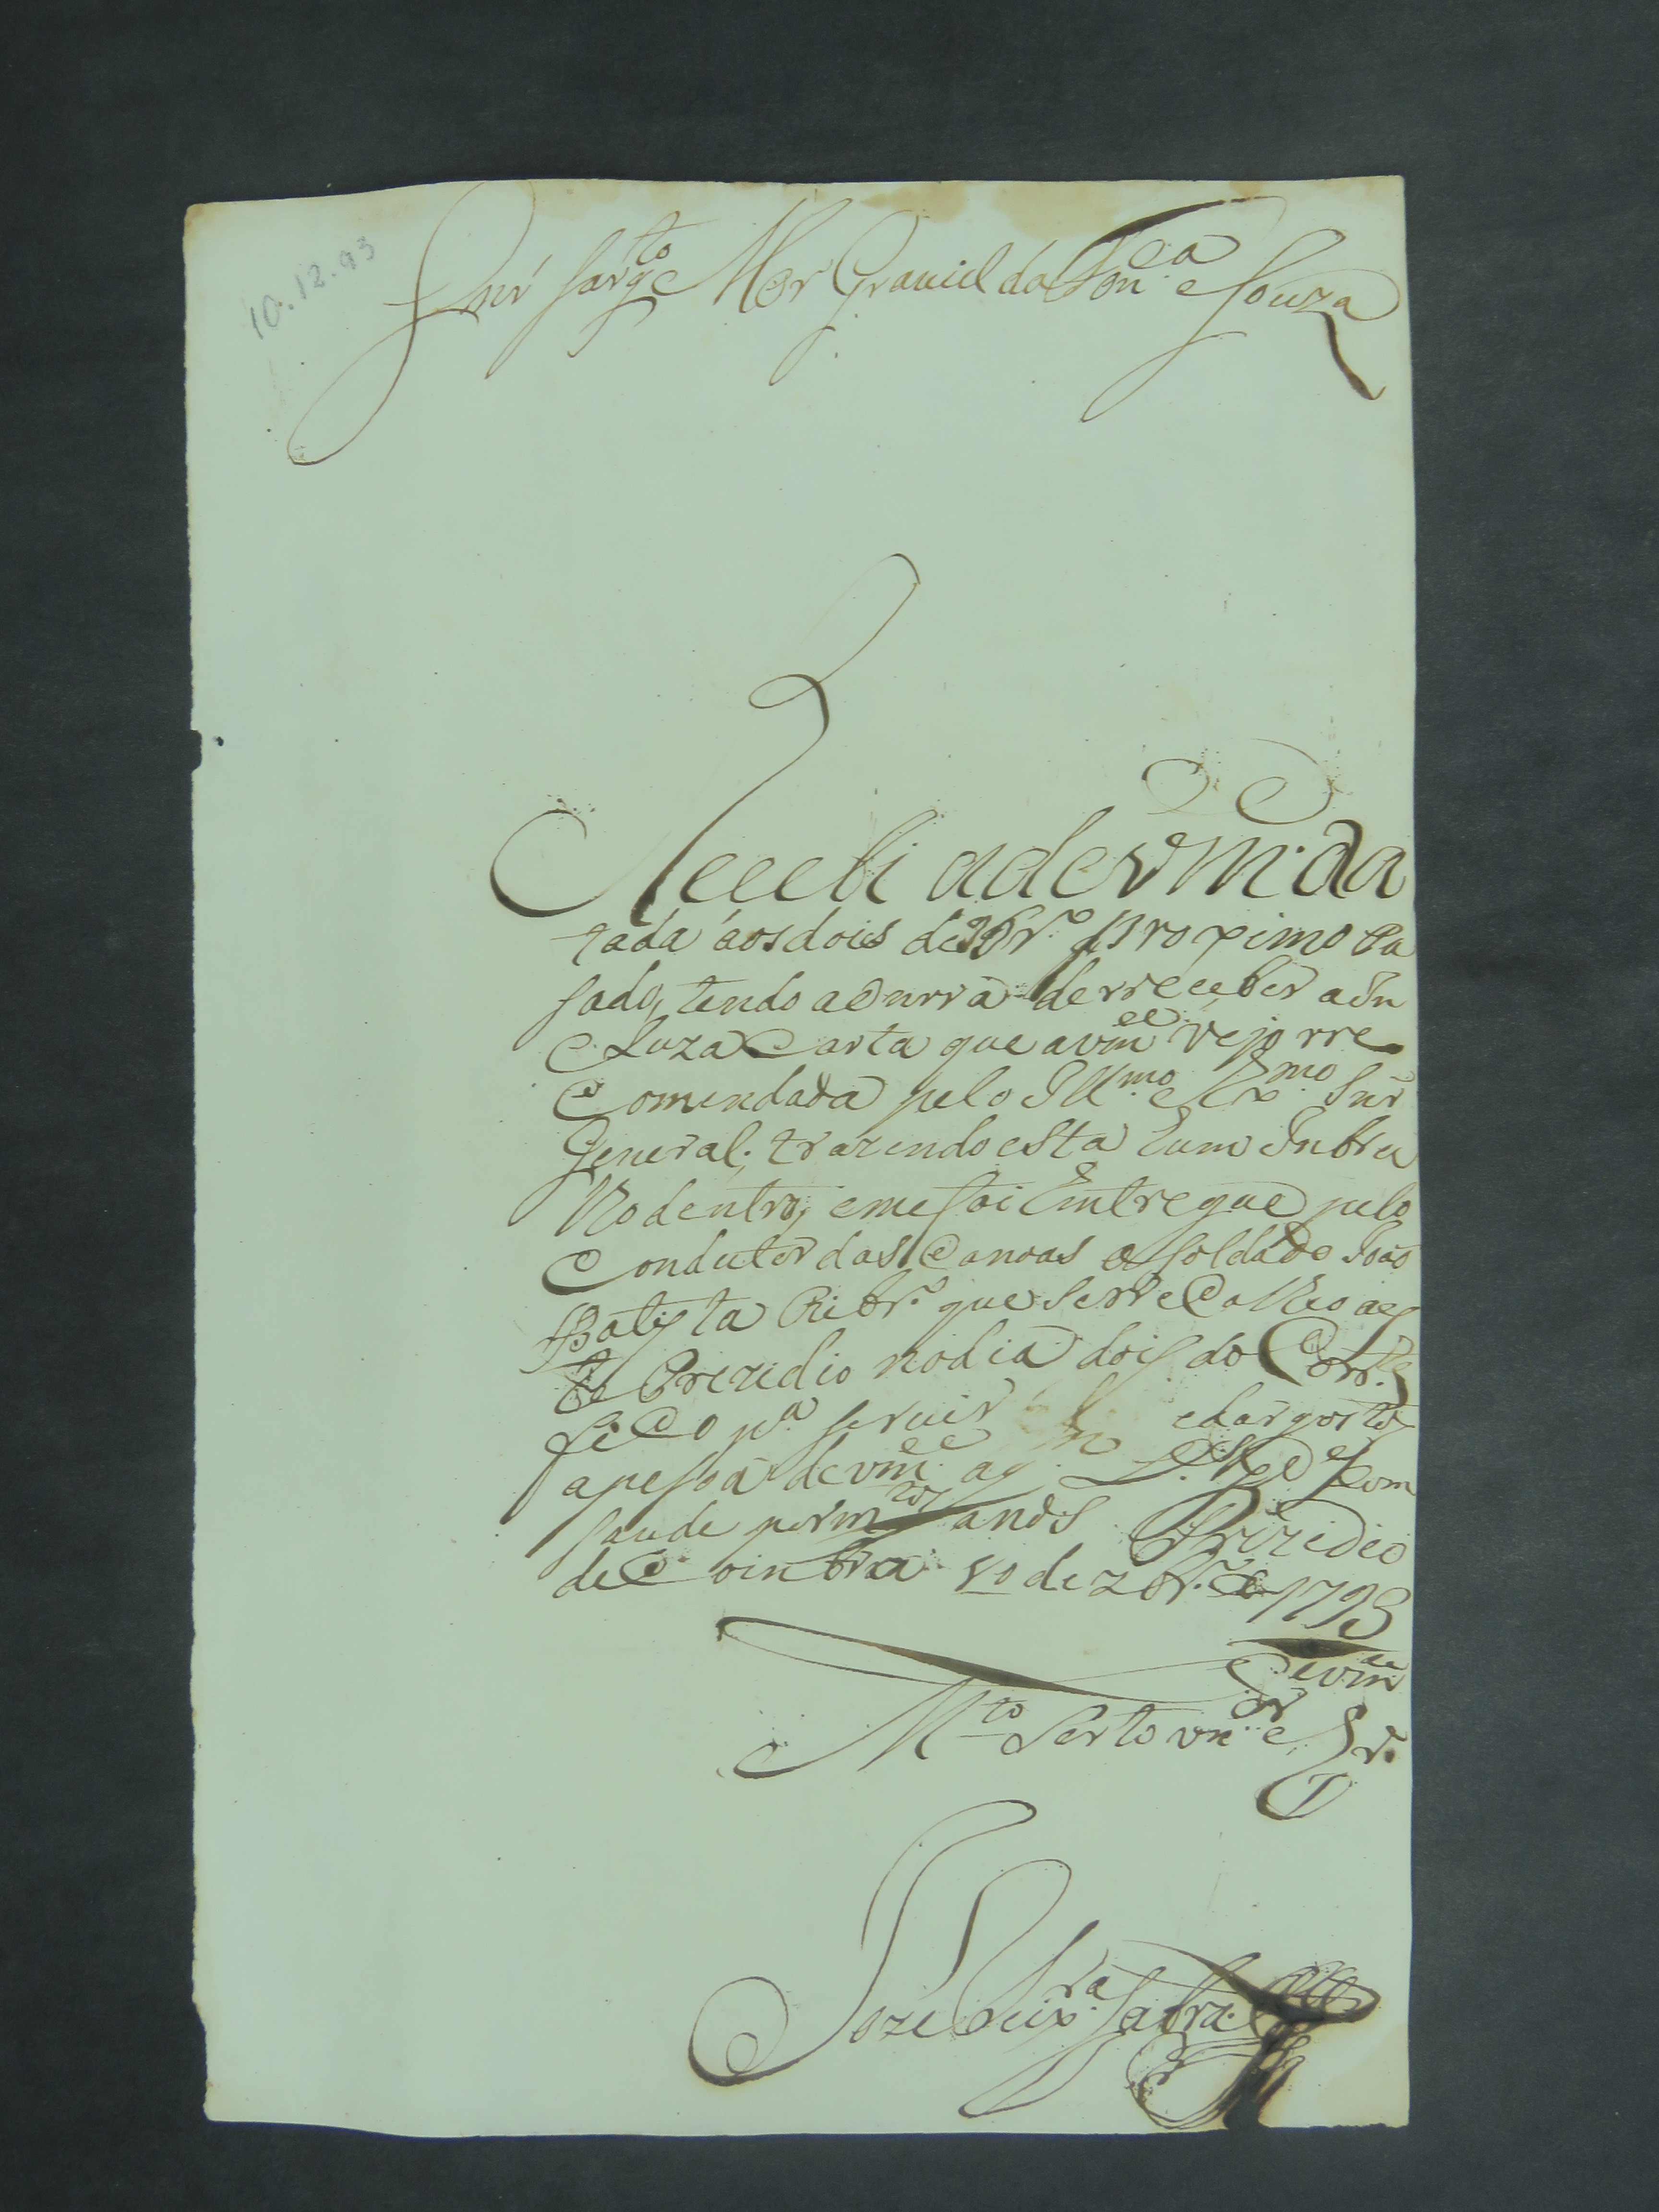 10.12.93
Snr Sargto Mor Graviel da Fonca e Souza
Recebi a de vm. da
tada áos dois de 9br.o Proximo Pa
sado, tendo a Onrra de rreceber a In
Cluza Carta que a vmce vejo rre
Comendada pelo Illmo e Exmo Snr
General. trazendo esta hum Inbru
lho dentro, e me foi Emtregue pelo
Condutor das Canoas o Soldado Joaõ
Batista Ribr.o que Serve
te Prezidio no dia dois do Corrte
fico pa servir e dar gosto
a pesoa de vmce a q. Ds gde Com
saude por mtos anos Prizidio
de Coinbra 10 de Zbr.o de 1793
De vmce
Mto Serto vnor e Cr.
Joze Teixra Cabral